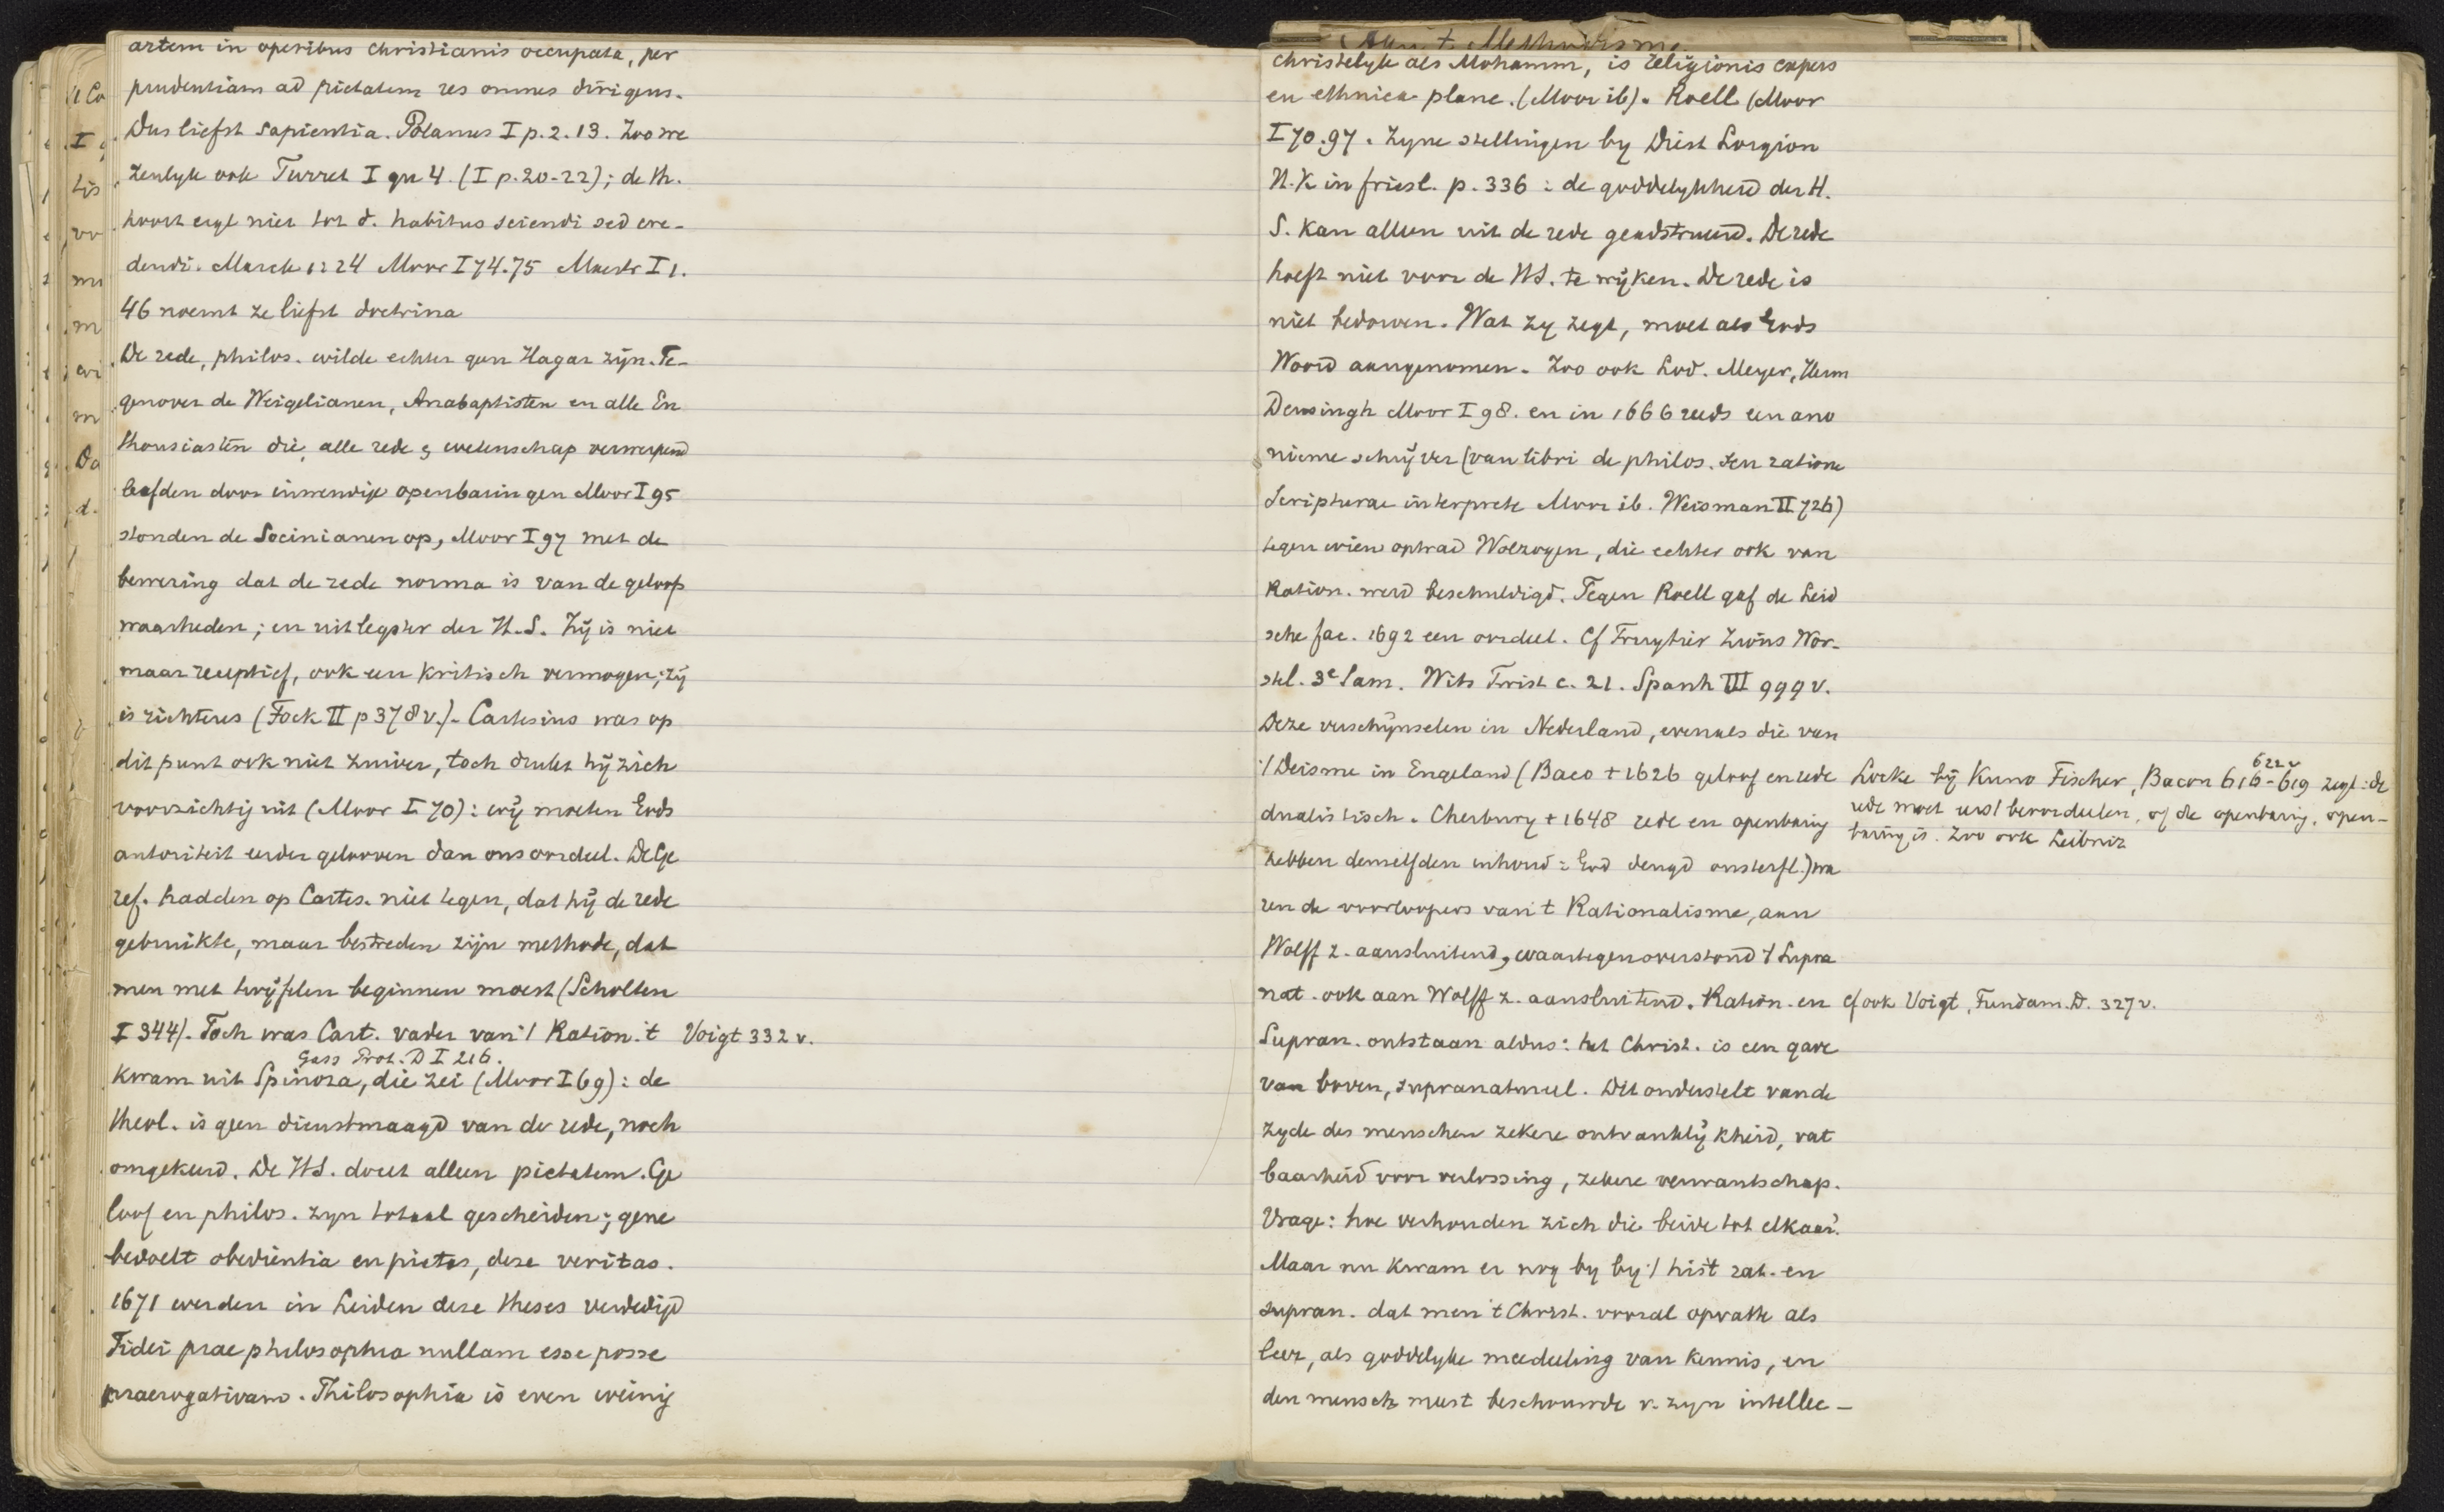 artem in operibus christianis occupata, per
prudentiam ad pietatem res omnes dirigens.
Dus liefst sapientia. Polanus I p. 2. 13. Zoo we
zenlyk ook Turret I qu 4. (I p. 20-22); de th.
hoort eigl niet tot d. habitus sciendi sed cre-
dendi. Marck 1224 Moor I 74.75 Mastr I 1.
46 noemt ze liefst doctrina
De rede, philos. wilde echter geen Hagar zijn. Te-
genover de Weigelianen, Anabaptisten en alle En
thousiasten die, alle rede & wetenschap verwerpend
leefden door inwendige openbaringen Moor I 95
stonden de Socinianen op, Moor I 97 met de
bewering dat de rede norma is van de geloofs
waarheden; en uitlegster der H.S. Zij is niet
maar receptief, ook een kritisch vermogen; zij
is richteres (Fock II p 378 v.). Cartesius was op
dit punt ook niet zuiver, toch drukt hij zich
voorzichtig uit (Moor I 70): wij moeten Gods
autoriteit eerder gelooven dan ons oordeel. De Ge
ref. hadden op Cartes. niet tegen, dat hij de rede
gebruikte, maar bestreden zijn methode, dat
men met twijfelen beginnen moest (Scholten
I 344). Toch was Cart. vader van 't Ration. 't Voigt 332 v.
Gass Prot. D I 216.
kwam uit Spinoza, die zei (Moor I 69): de
theol. is geen dienstmaagd van de rede, noch
omgekeerd. De HS. doelt alleen pietatem. Ge
loof en philos. zyn totaal gescheiden; gene
bedoelt obedientia en pietas, deze veritas.
1671 werden in Leiden deze theses verdedigd
Fidei prae philosophia nullam esse posse
praerogativam. Philosophia is even weinig
Aan 't Methodisme
christelyk als Mohamm, is religionis expers
en ethnica plane. (Moor ib). Roell (Moor
I 70.97. Zyne stellingen by Diest Lorgion
N.K in friesl. p. 336: de goddelykheid der H.
S. kan alleen uit de rede geadstrueerd. De rede
hoeft niet voor de HS. te wijken. De rede is
niet bedorven. Wat zy zegt, moet als Gods
Woord aangenomen. Zoo ook Lod. Meyer, Herm
Deusingh Moor I 98. en in 1666 reeds een ano
nieme schrijver (van libri de philos. seu ratione
Scripturae interprete Moor ib. Weisman II 726)
tegen wien optrad Wolzogen, die echter ook van
Ration. werd beschuldigd. Tegen Roell gaf de Leid
sche fac. 1692 een oordeel. Cf Fruytier Zions Wor-
stel. 3e Sam. Wits Twist c. 21. Spanh III 999 v.
Deze verschijnselen in Nederland, evenals die van
't Deisme in Engeland (Baco + 1626 geloof en rede
dualistisch. Cherbury + 1648 rede en openbaring
hebben denzelfden inhoud: God deugd onsterfl.) wa
ren de voorloopers van 't Rationalisme, aan
Wolff z. aansluitend, waartegenoverstond 't Supra
nat. ook aan Wolff z. aansluitend. Ration. en
Supran. ontstaan aldus: het Christ. is een gave
van boven, supranatureel. Dit onderstelt van de
zyde des menschen zekere ontvankelijkheid, vat
baarheid voor verlossing, zekere verwantschap.
Vrage: hoe verhouden zich die beide tot elkaar?
Maar nu kwam er nog by by 't hist rat. en
supran. dat men 't Christ. vooral opvatte als
leer, als goddelyke mededeeling van kennis, en
den mensch meest beschouwde v. zyn intellec-
622 v
Locke bij Kuno Fischer, Bacon 616-619 zegt: de
rede moet eerst beoordeelen, of de openbaring, open-
baring is. Zoo ook Leibniz
cf ook Voigt, Fundam. D. 327 v.